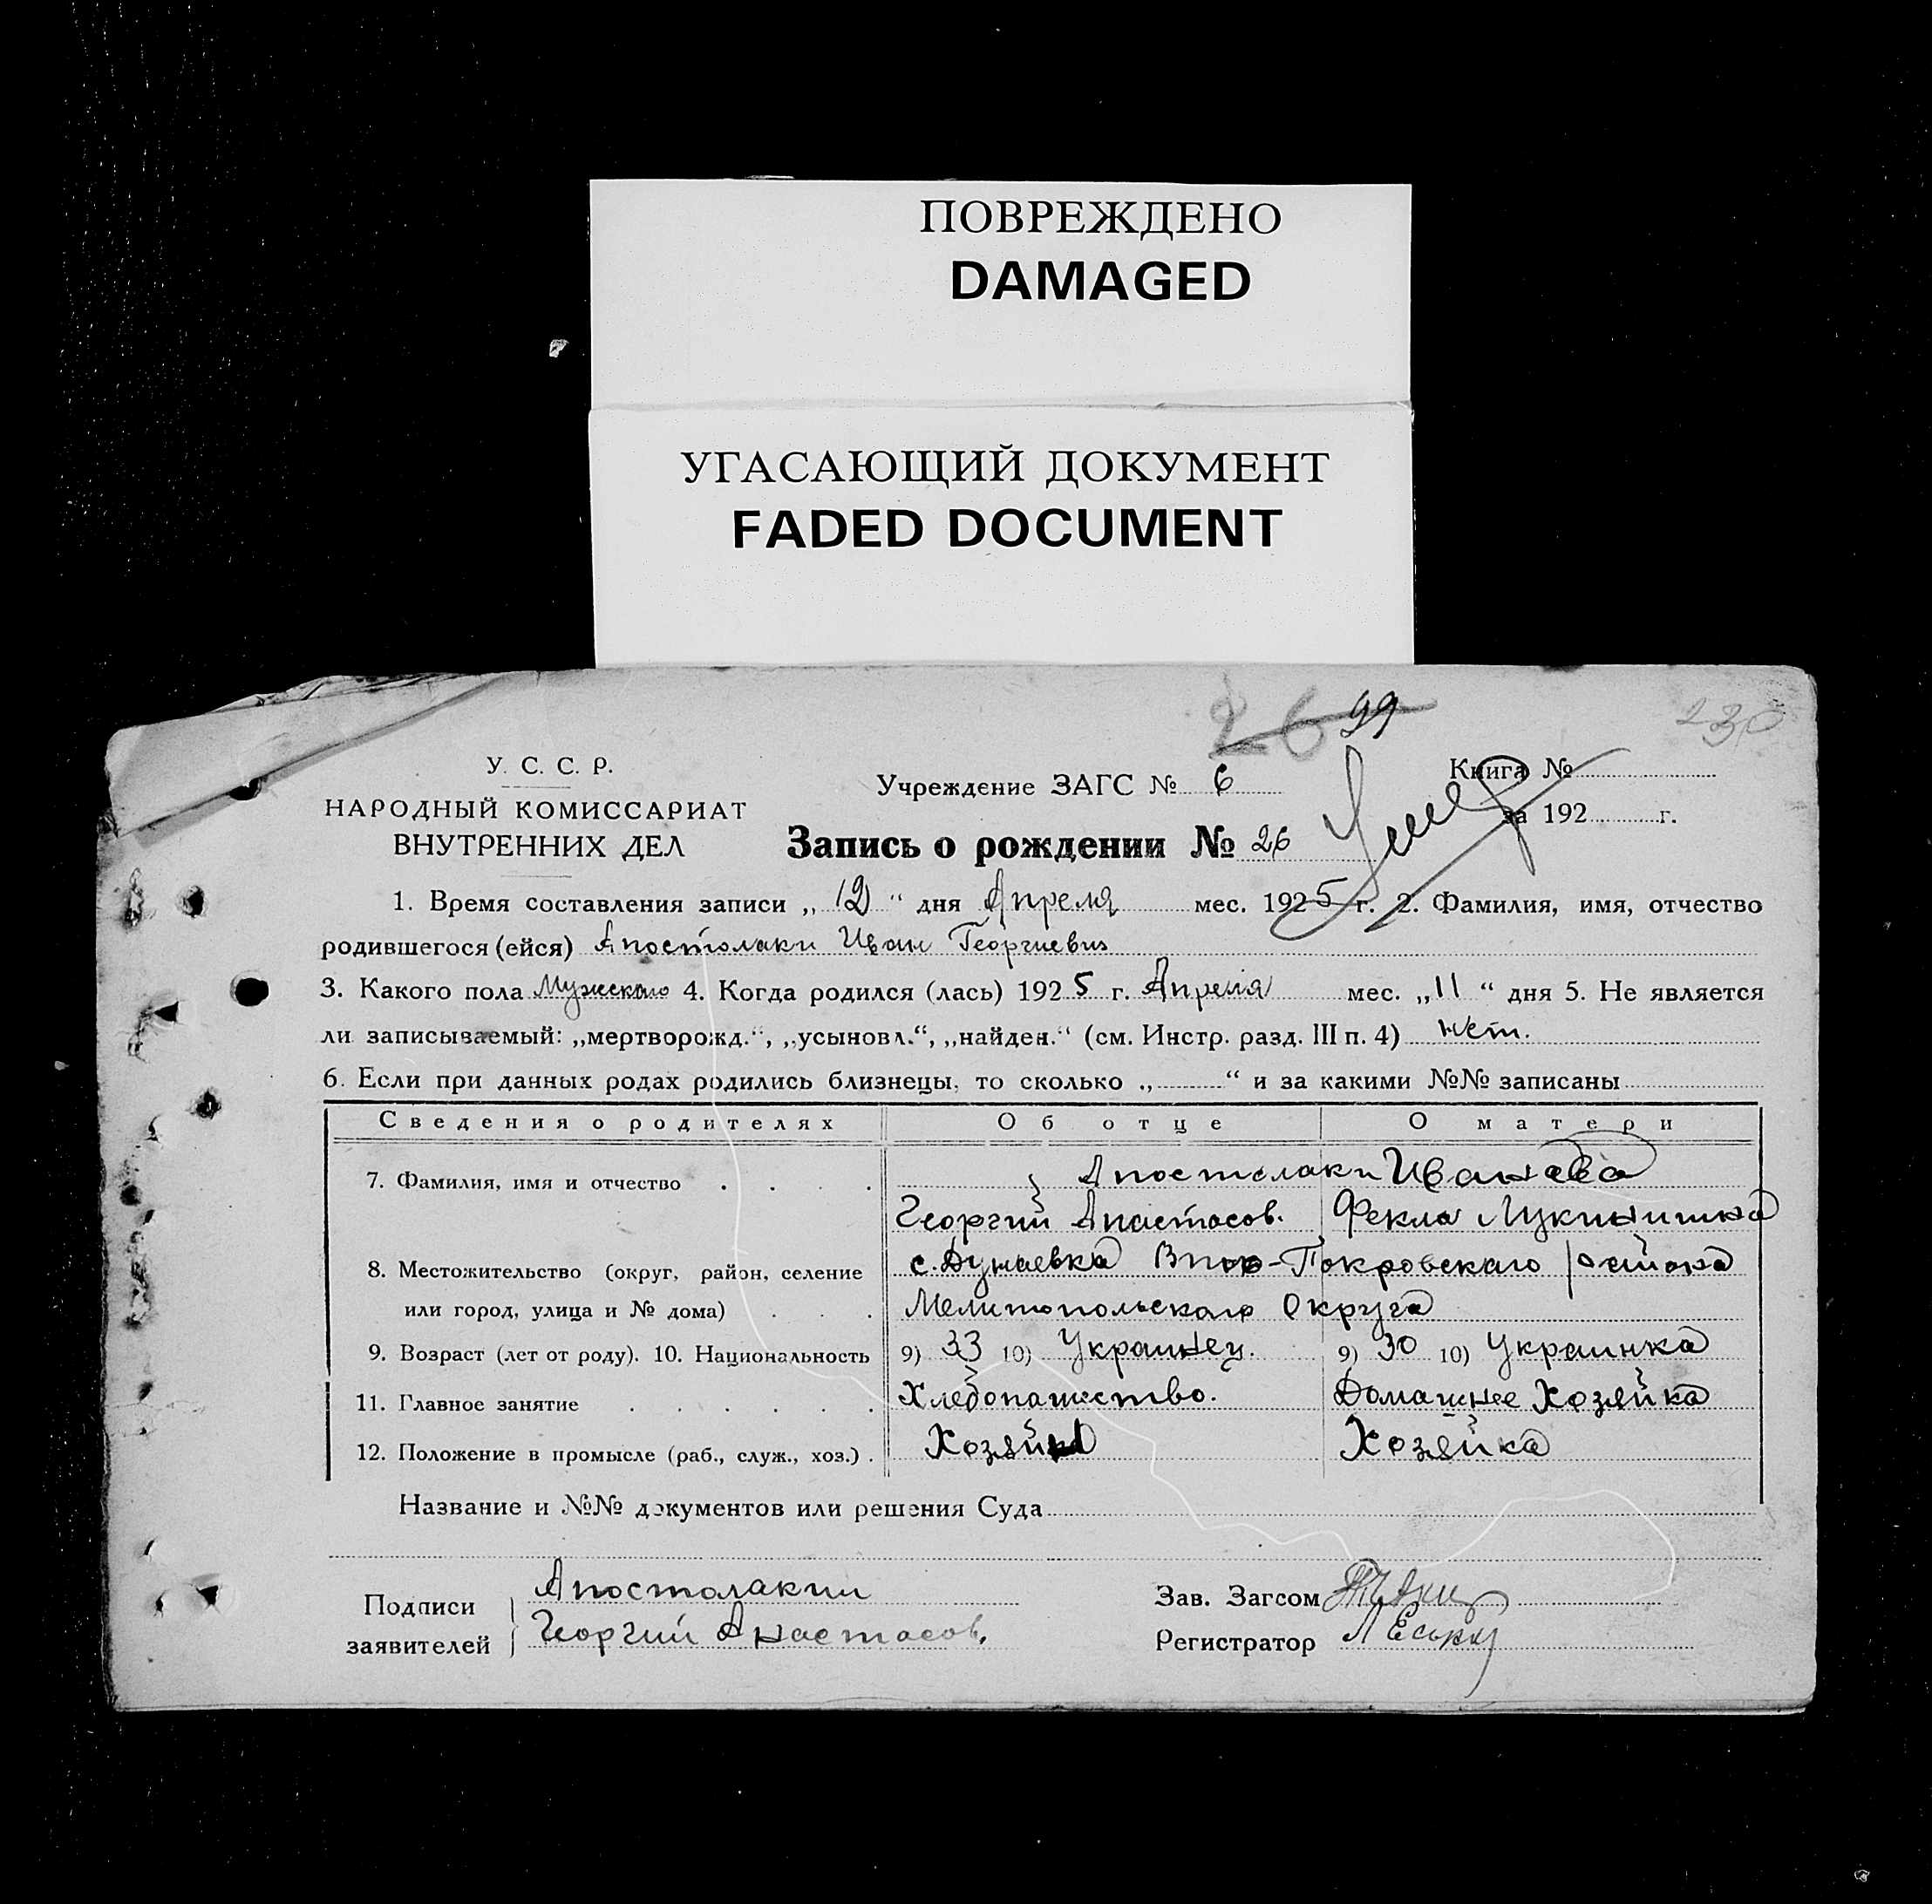 ПОВРЕЖДЕНО
DAMAGED
УГАСАЮЩИЙ ДОКУМЕНТ
FADED DOCUMENT
26 99
230
У. С. С. Р.
НАРОДНЫЙ КОМИССАРИАТ
ВНУТРЕННИХ ДЕЛ
Учреждение ЗАГС № 6
Книга №
за 192 г.
Запись о рождении № 26
Умер
1. Время составления записи „12“ дня Апреля мес. 1925 г. 2. Фамилия, имя, отчество
родившегося (ейся) Апостолаки Иван Георгиевич
3. Какого пола Мужского 4. Когда родился (лась) 1925 г. Апреля мес. „11“ дня 5. Не является
ли записываемый: „мертворожд.“, „усыновл.“, „найден.“ (см. Инстр. разд. III п. 4) нет.
6. Если при данных родах родились близнецы, то сколько „ “ и за какими №№ записаны
Сведения о родителях Об отце О матери
7. Фамилия, имя и отчество Апостолаки Иванова
Георгий Анастасов. Фекла Лукинишна
8. Местожительство (округ, район, селение с. Дунаевка -Покровского района
или город, улица и № дома) Мелитопольского Округа
9. Возраст (лет от роду). 10. Национальность 9) 33 10) Украинец. 9) 30 10) Украинка
11. Главное занятие Хлебопашество. Домашнее Хозяйка
12. Положение в промысле (раб., служ., хоз.) Хозяин Хозяйка
Название и №№ документов или решения Суда
Подписи заявителей
Апостолакии
Георгий Анастасов.
Зав. Загсом
Регистратор